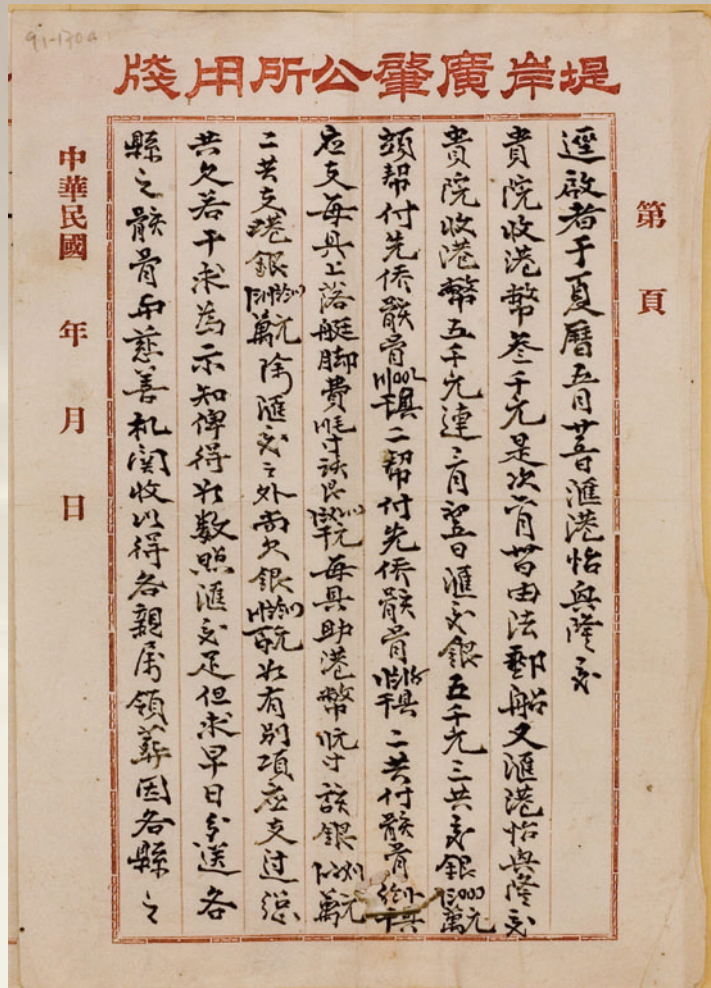 91-130a
堤岸廣肇公所用牋
第 頁
逕啟者于夏曆五月滙港怡興隆交
貴院收港幣叁千元是次由法郵船又滙港怡興隆交
貴院收港幣五千元連滙交銀五千元三共交銀〡〣000萬元
頭幫付先僑骸骨千具二幫付先僑骸骨千具二共付骸骨千具
應支每具上落艇脚費該艮千元每具助港幣該銀萬元
二共支港銀萬元除滙交之外尚欠銀百元如有别項應支过总
共欠若干求為示知俾得如数照滙交足但求早日分送各
縣之骸骨与慈善机関收以得各親属領葬因各縣之
中華民國 年 月 日